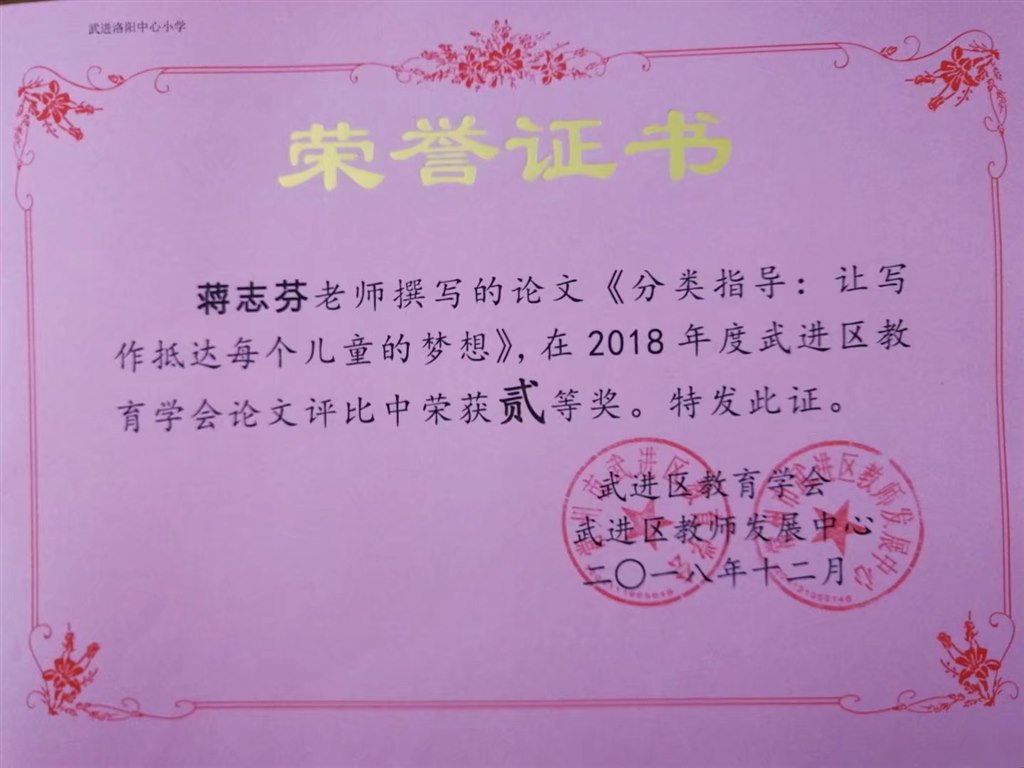 武进洛阳中心小学
荣誉证书
蒋志芬老师撰写的论文《分类指导：让写
作抵达每个儿童的梦想》，在 2018 年度武进区教
育学会论文评比中荣获贰等奖。特发此证。
武进区教育学会
武进区教师发展中心
二〇一八年十二月